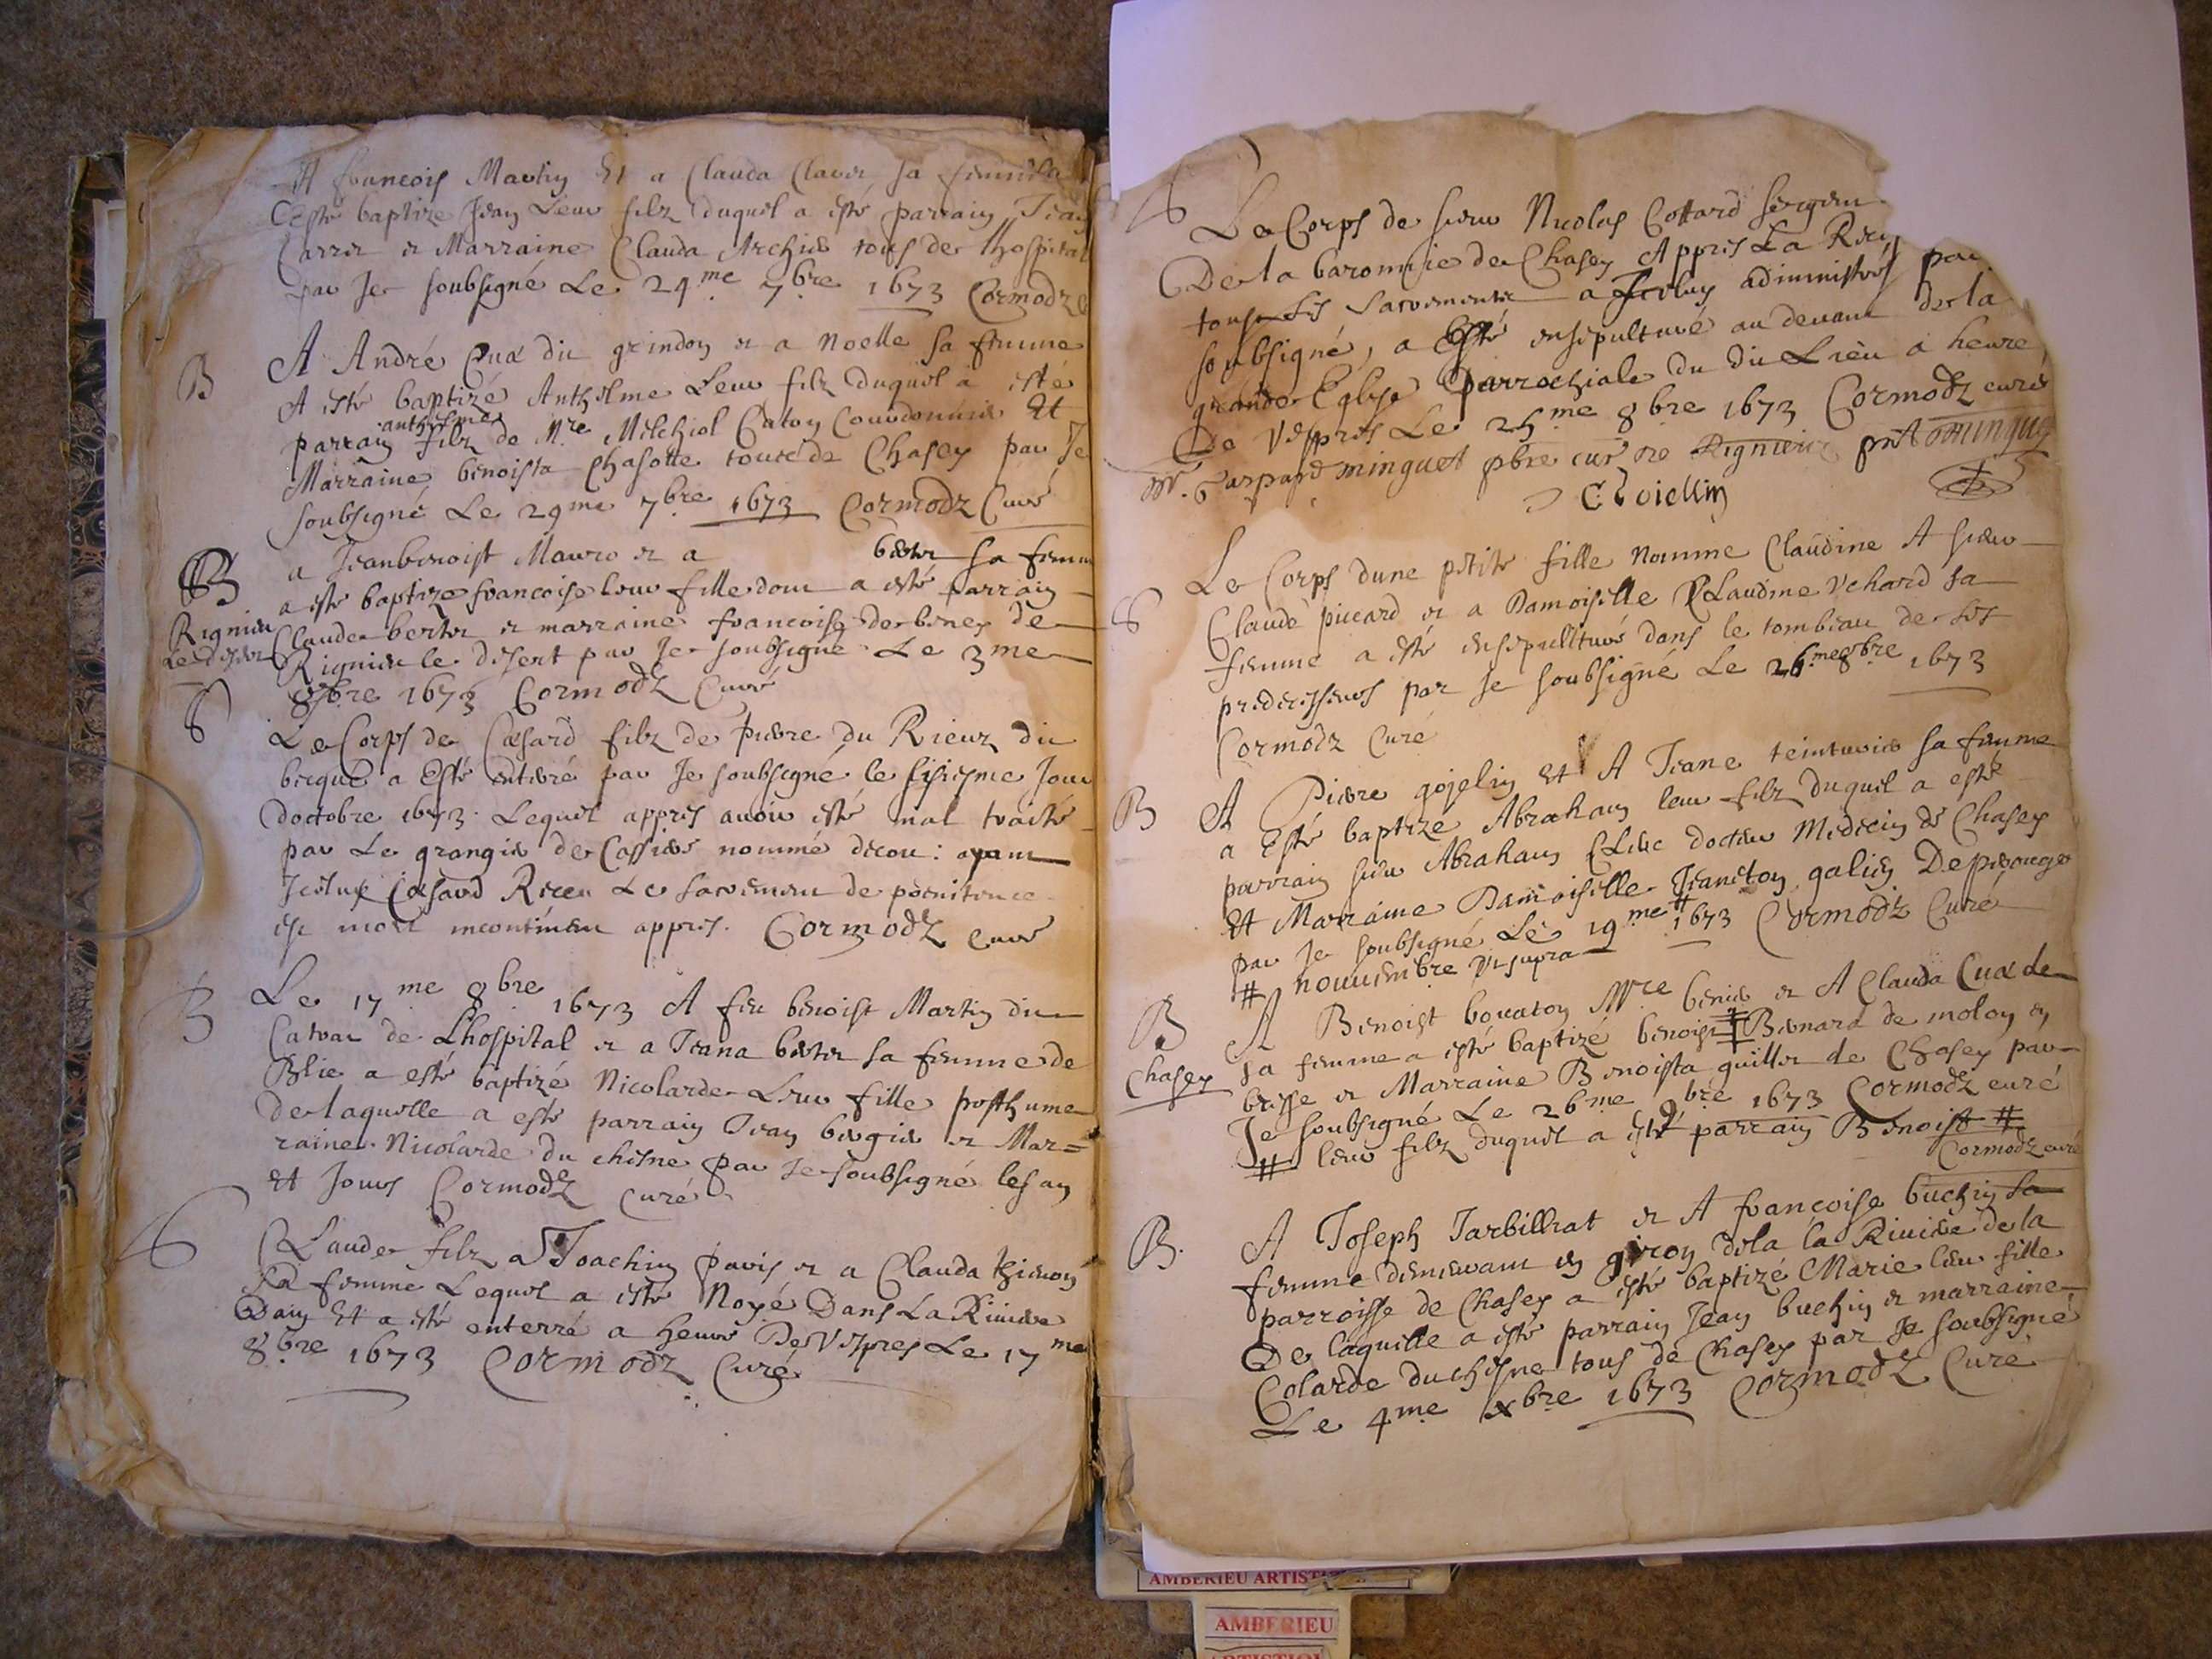 A francois Martin Et a Clauda Claver sa femme
Esté baptize Jean Leur filz duquel a esté parrain Jean
Carrer et Marraine Clauda Archier tous de Lhospital
par Je soubsigné Le 24me 7bre 1673 Cormodz
B
A André Cua dit grindon et a Noelle sa femme
A esté baptizé Anthelme Leur filz duquel a esté
parrain anthelme filz de Mre Melchiol Caton Courdonnier Et
Marraine benoista Chasotte toute de Chasey par Je
soubsigné Le 29me 7bre 1673 Cormodz Curé
B
a Jeanbenoist Mauro et a berter sa femme
a esté baptize francoise leur fille dont a esté parrain
Rignieu
Le desert
Claude berter et marraine francoise de beney de
Rignieu le desert par Je soubsigné Le 3me
8bre 1673 Cormodz Curé
S
Le Corps de Cæsard filz de Pierre du Rieux dit
becque a Esté entierré par Je soubsigné le sisiesme Jour
doctobre 1673. Lequel appres avoir esté mal traité
par Le grangier de Cossieres nommé decou : ayant
Jceluy Cæsard Receu Le sacrement de pœnitence
est mort incontinent appres. Cormodz curé
B
Le 17me 8bre 1673 A feu benoist Martin du
Catvar de Lhospital et a Jeana berter sa femme de
Blie a esté baptizé Nicolarde Leur fille posthume
de laquelle a esté parrain Jean bergier et Mar=
raine Nicolarde du chesne par Je soubsigné les an
et Jours Cormodz curé
S
Claude filz a Joachin Paris et a Clauda
sa femme Lequel a esté Noyé Dans La Riviere
Dain Et a esté enterré a heure De Vespres Le 17me
8bre 1673 Cormodz Curé
S
Le Corps de sieur Nicolas Cottard sergen
De la baronnie de Chasey Appres La
tous Les Sacrements a Jceluy administrés par
soubsigné, a Esté ensepulturé au devant de la
grande Eglise Parrochiale du dit Lieu a heure
De Vespres Le 25me 8bre 1673 Cormodz curé
Mr. Gaspard minguet pbre curé de Rignieu pnt minguet
S
Le Corps dune petite fille Nomme Claudine A sieur
Claude piccard et a Damoiselle Claudine Vchard sa
femme a esté ensepullturé dans le tombeau de ses
predecesseurs par Je soubsigné Le 26me 8bre 1673
Cormodz Curé
B
A Pierre gojelin Et A Jeane teinturier sa femme
a Esté baptizé Abraham leur filz duquel a esté
parrain sieur Abraham Clerc docteur Medecin de Chasey
Et Marraine Damoiselle Jeaneton galien De peronges
par Je soubsigné Le 19me # 1673 Cormodz Curé
# nouvembre Vt supra
B
Chasey
A Benoist bovaton Mre benier et A Clauda Cua de
sa femme a esté baptizé benoist # Bernard de molon en
bresse et Marraine Benoista quiller de Chasey par
Je soubsigné Le 26me 9bre 1673 Cormodz curé
# leur filz duquel a esté parrain Benoist #
Cormodz curé
B.
A Joseph Jarbillrat et A francoise buchin sa
femme demeurant en giron dela la Riviere de la
parroisse de Chasey a esté baptizé Marie leur fille
De laquelle a esté parrain Jean buchin et marraine
Colarde duchesne tous de Chasey par Je soubsigné
Le 4me xbre 1673 Cormodz Curé
AMBERIEU ARTISTI
AMBERIEU